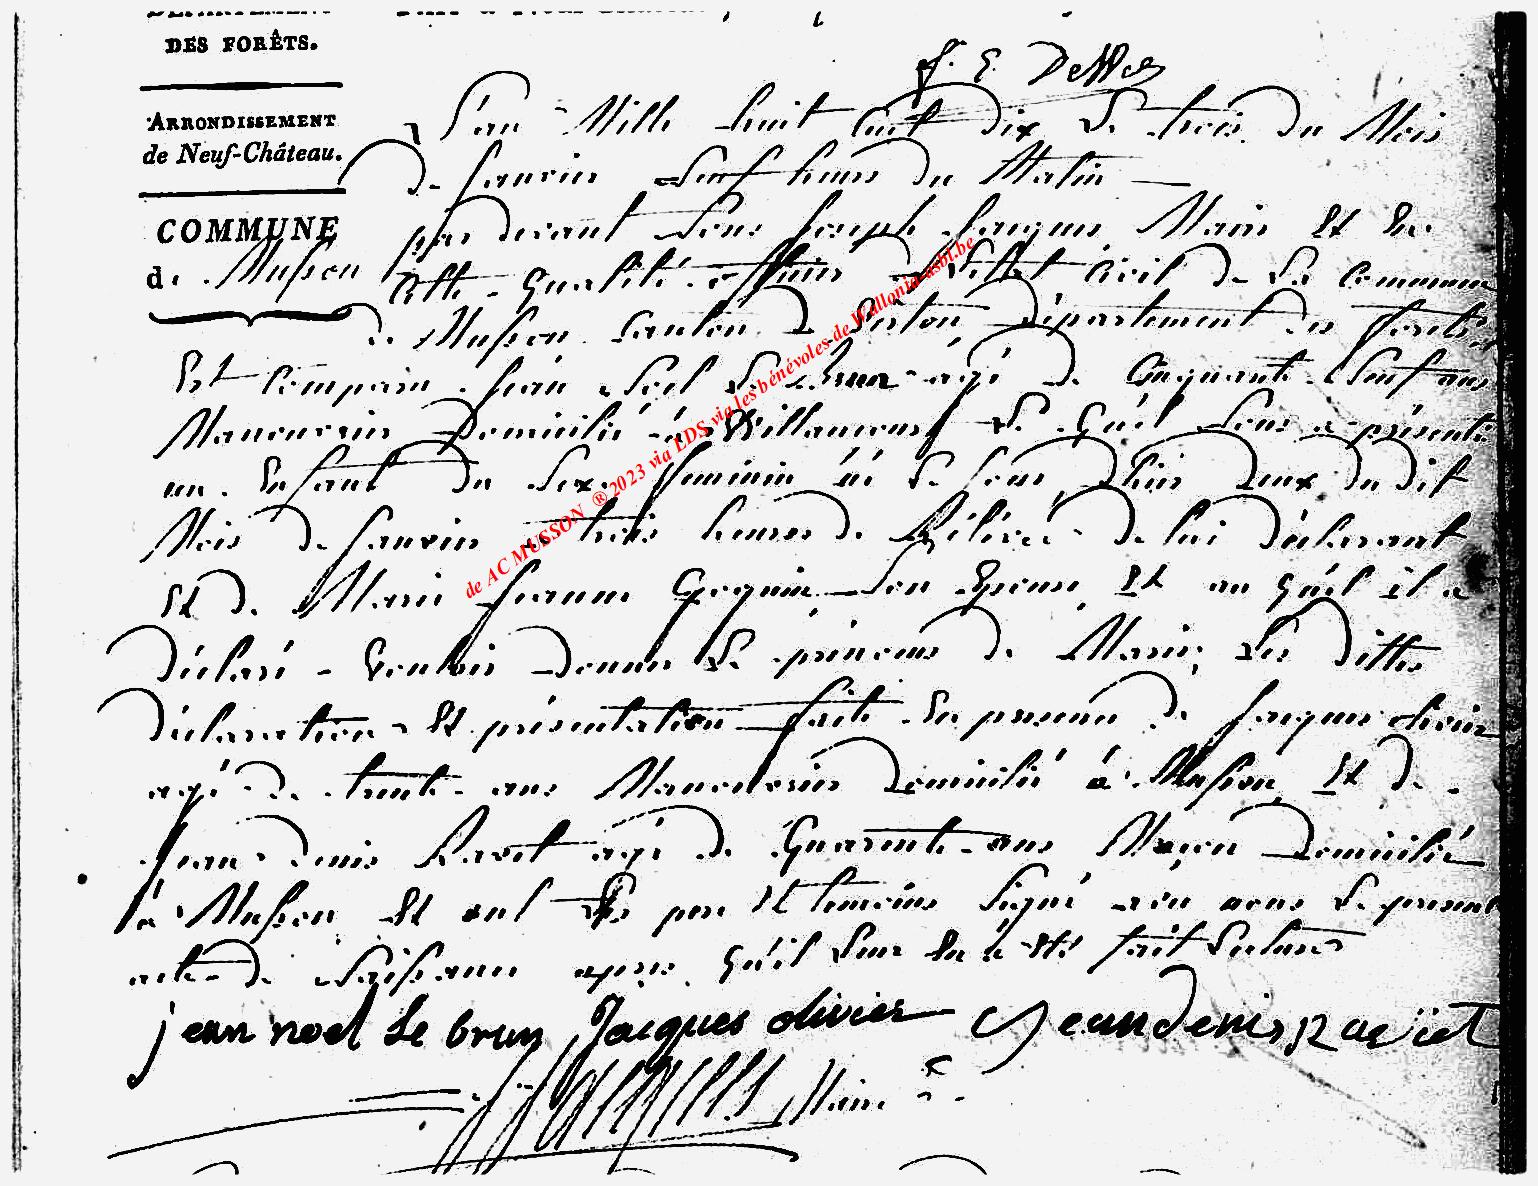 DES FORÊTS.
ARRONDISSEMENT
de Neuf-Château.
COMMUNE
de Musson
L'an Mille huit Cent dix Le trois du Mois
de Janvier Neuf heures du Matin
par devant Nous Joseph Jacques Maire Et En
Cette qualité officier de L'Etat Civil de La commune
de Musson Canton de Virton département des forêts
Est comparu Jean Noel Le Brun agé de Cinquante Neuf ans
Manouvrier Domicilié à Willancourt Le quel Nous a présenté
un Enfant du Sexe feminin né Le Jour d'hier deux du dit
Mois de Janvier à trois heures de Rélévée de lui déclarant
Et de Marie Jeanne Goguin Son Epouse Et au quel il a
déclaré vouloir donner Le prénoms de Marie, Les dittes
déclaration Et présentation fait En presence de Jacques olivier
agé de trente ans Manouvrier Domicilié à Musson Et de
Jean denis agé de Quarante ans Maçon Domicilié
à Musson Et ont Les pere Et temoins Signé avec nous Le present
acte de Naissance apres qu'il Leur En a Eté fait Lecture
jean noel le brun Jacques olivier Jean denis
Maire
de AC MUSSON ®2023 via LDS via les bénévoles de Wallonia-asbl.be